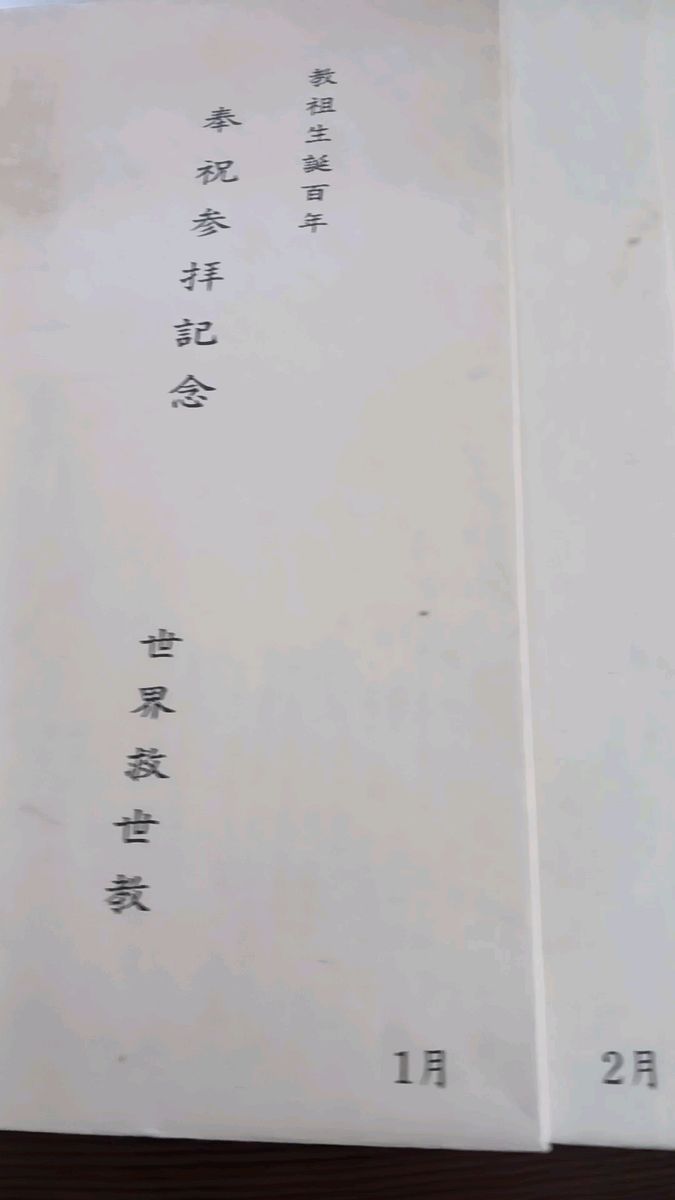 教祖生誕百年
奉祝参拝記念
世界救世教
1月
2月